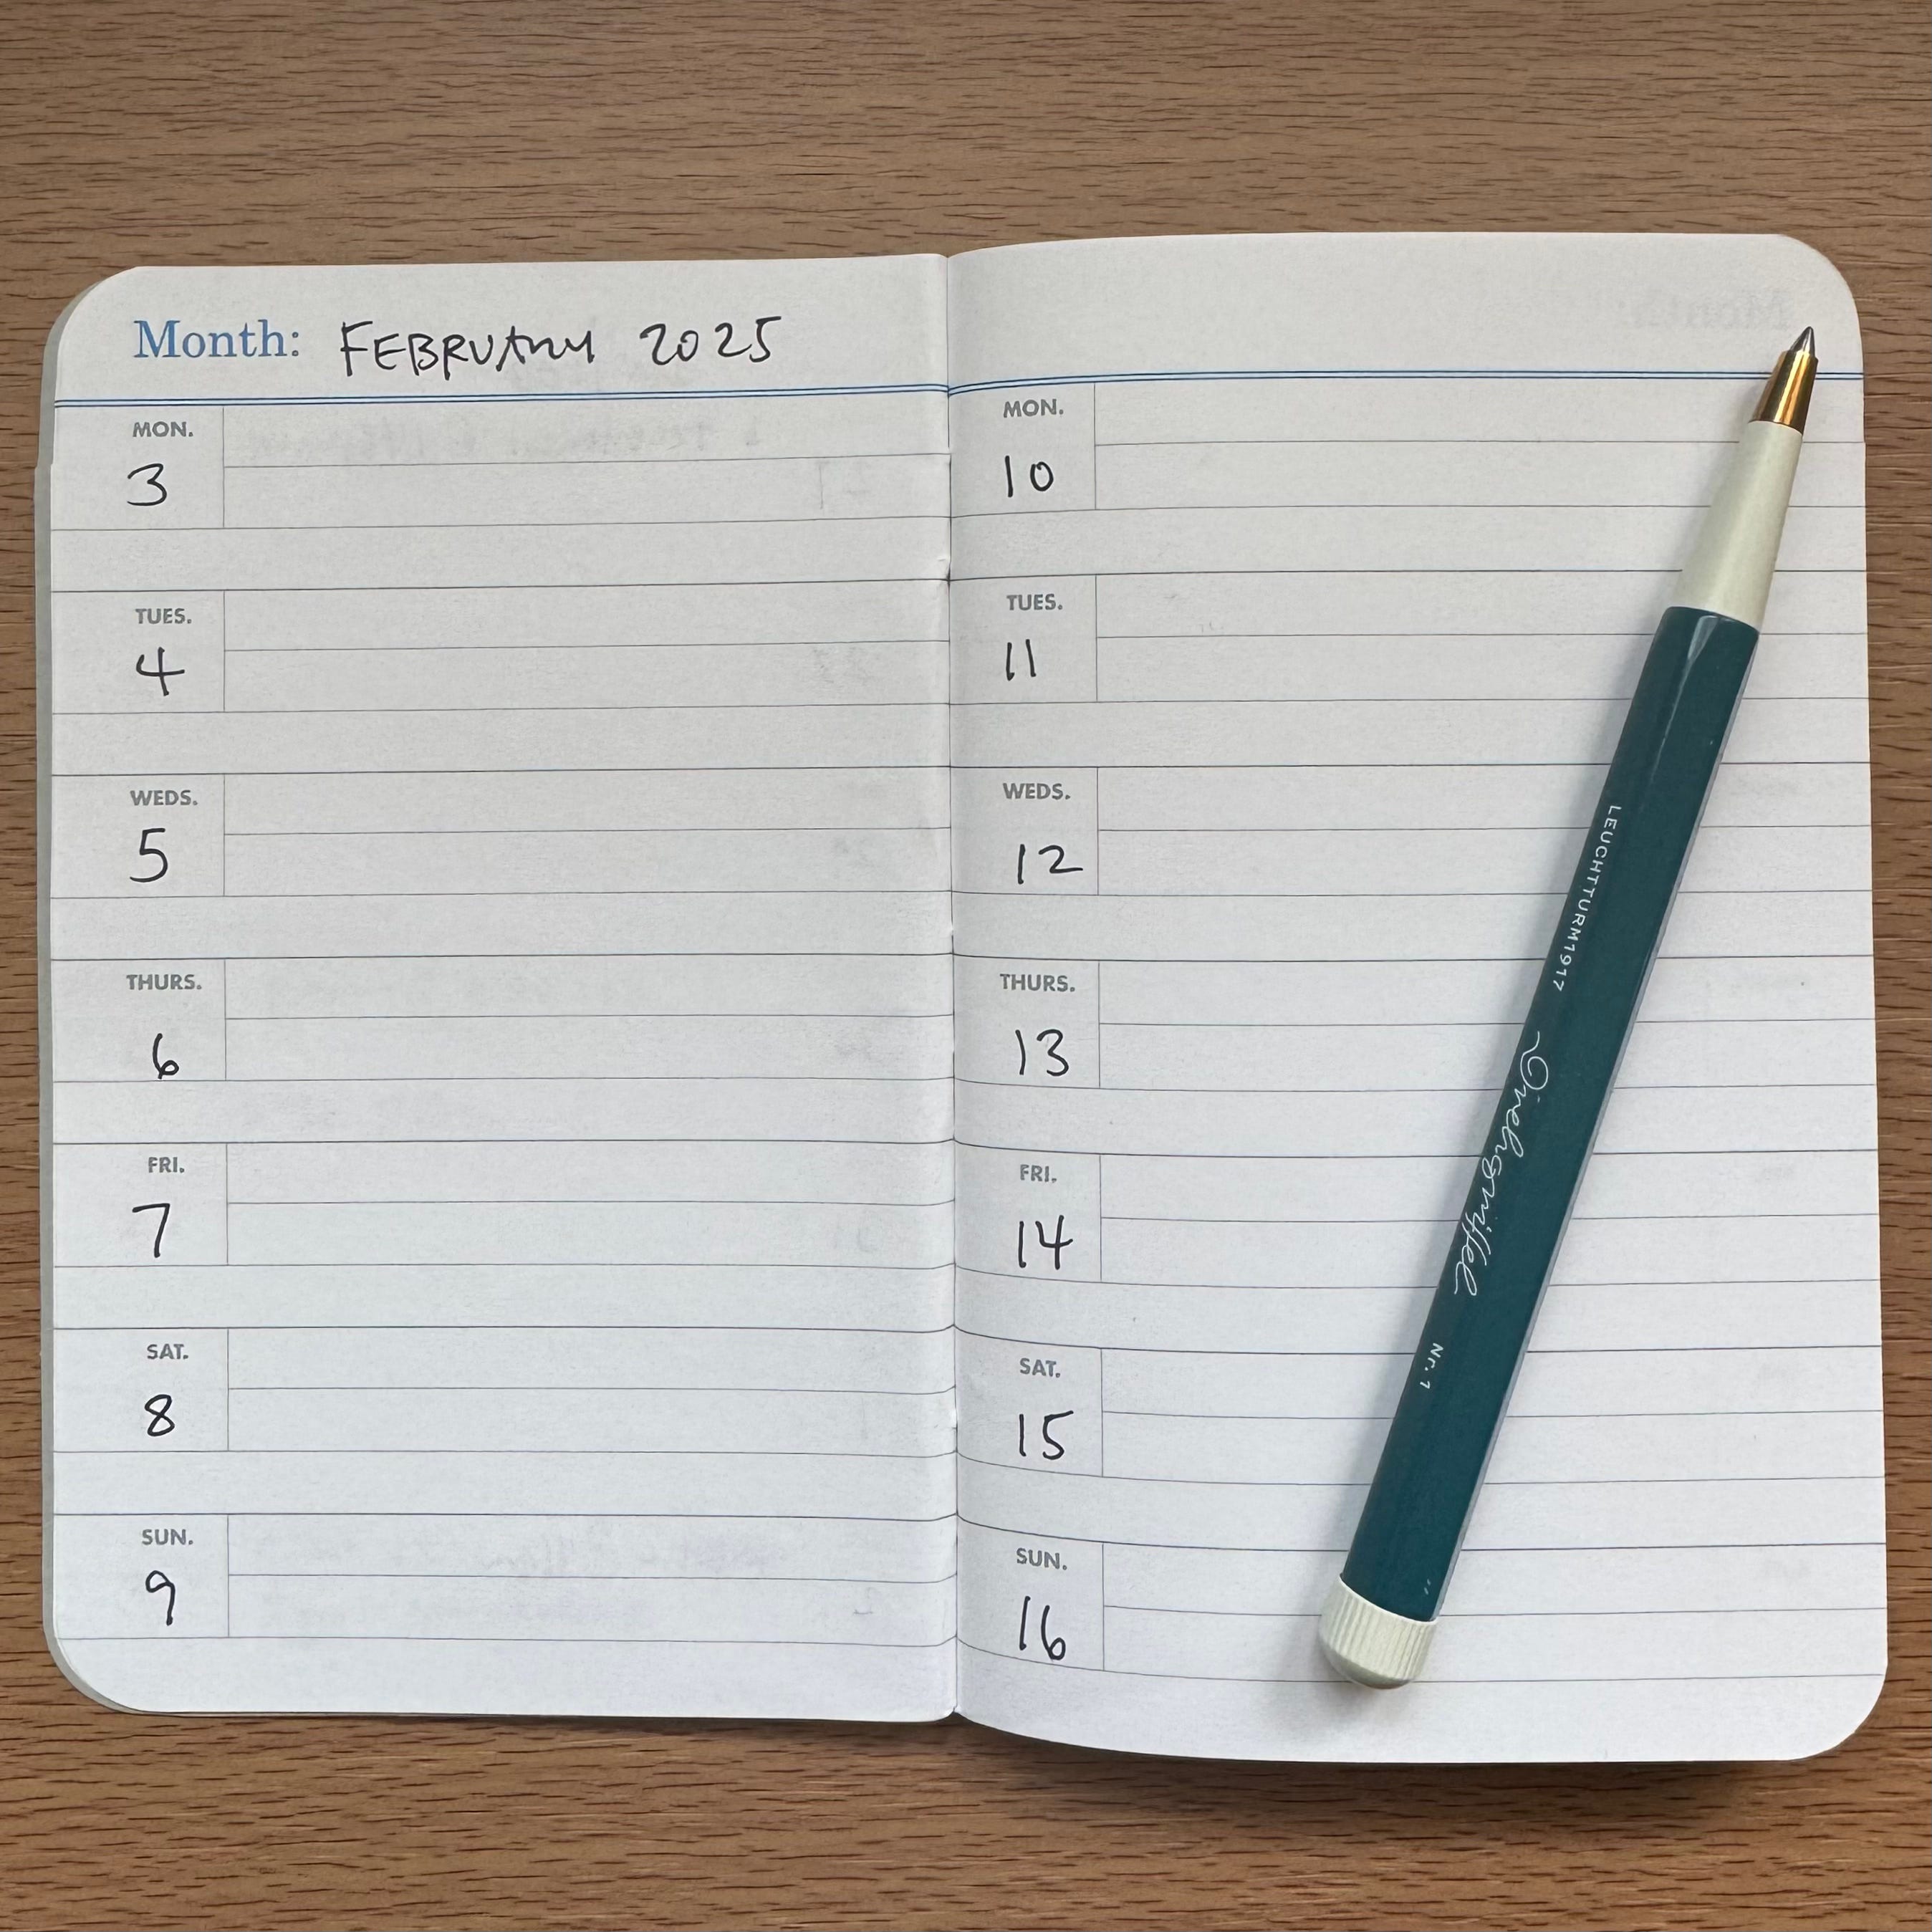 Month: FEBRUARY 2025
MON.
3
TUES.
4
WEDS.
5
THURS.
6
FRI.
7
SAT.
8
SUN.
9
MON.
10
TUES.
11
WEDS.
12
THURS.
13
FRI.
14
SAT.
15
SUN.
16
LEUCHTTURM1917 Drehgriffel Nr. 1